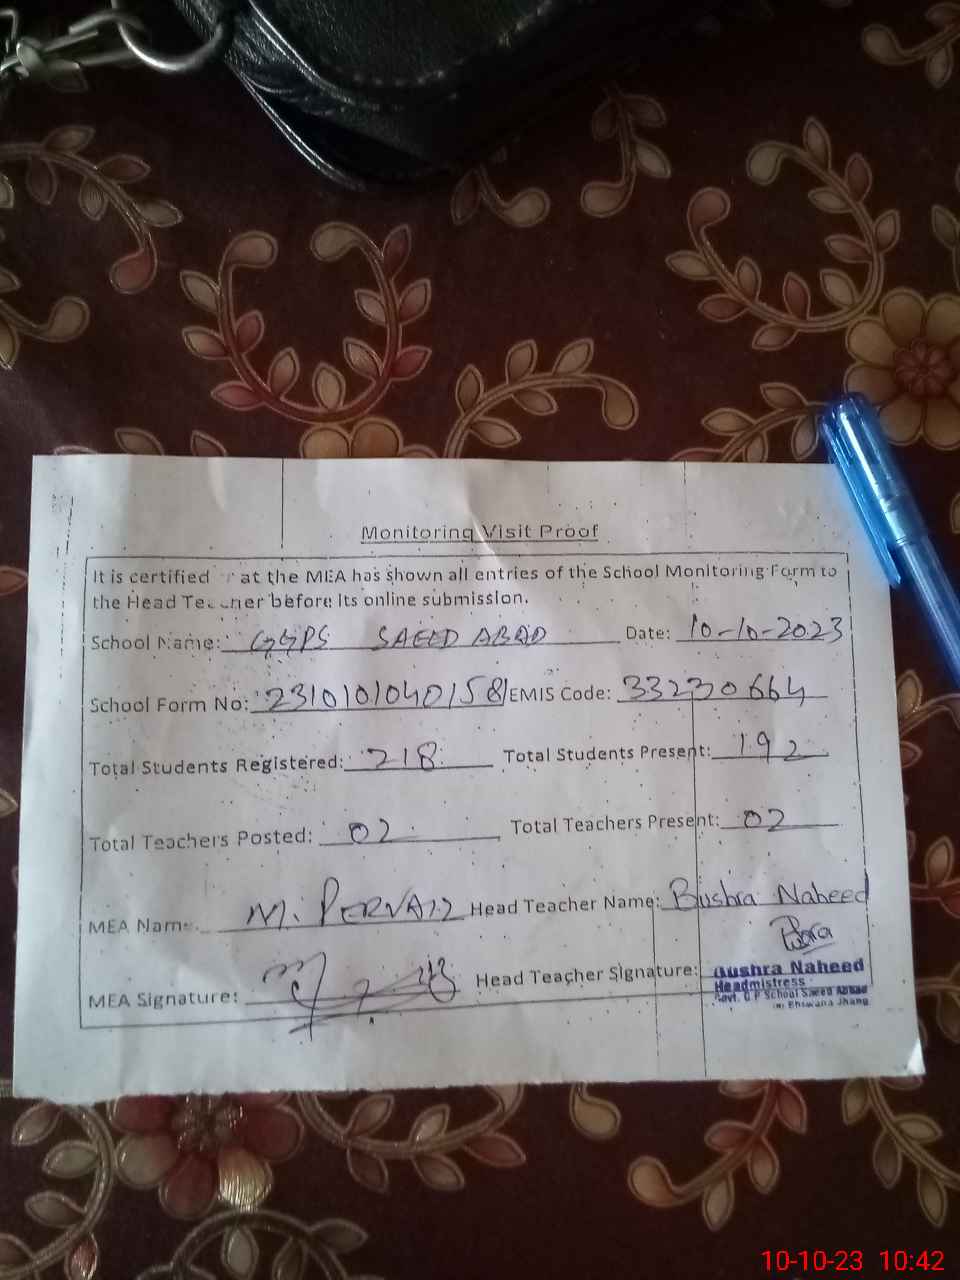 Monitoring Visit Proof
It is certified at the MEA has shown all entries of the School Monitoring Form to
the Head Teacher before its online submission.
School Name: GGPS SAEED ABAD Date: 10-10-2023
School Form No: 2310101040158 EMIS Code: 33230664
Total Students Registered: 218 Total Students Present: 192
Total Teachers Posted: 02 Total Teachers Present: 02
MEA Name: M. PERVAIZ Head Teacher Name: Bushra Naheed
MEA Signature: Head Teacher Signature:
Bushra Naheed
Headmistress
Govt. G.P School Saeed Abad
Bhowana Jhang
10-10-23 10:42